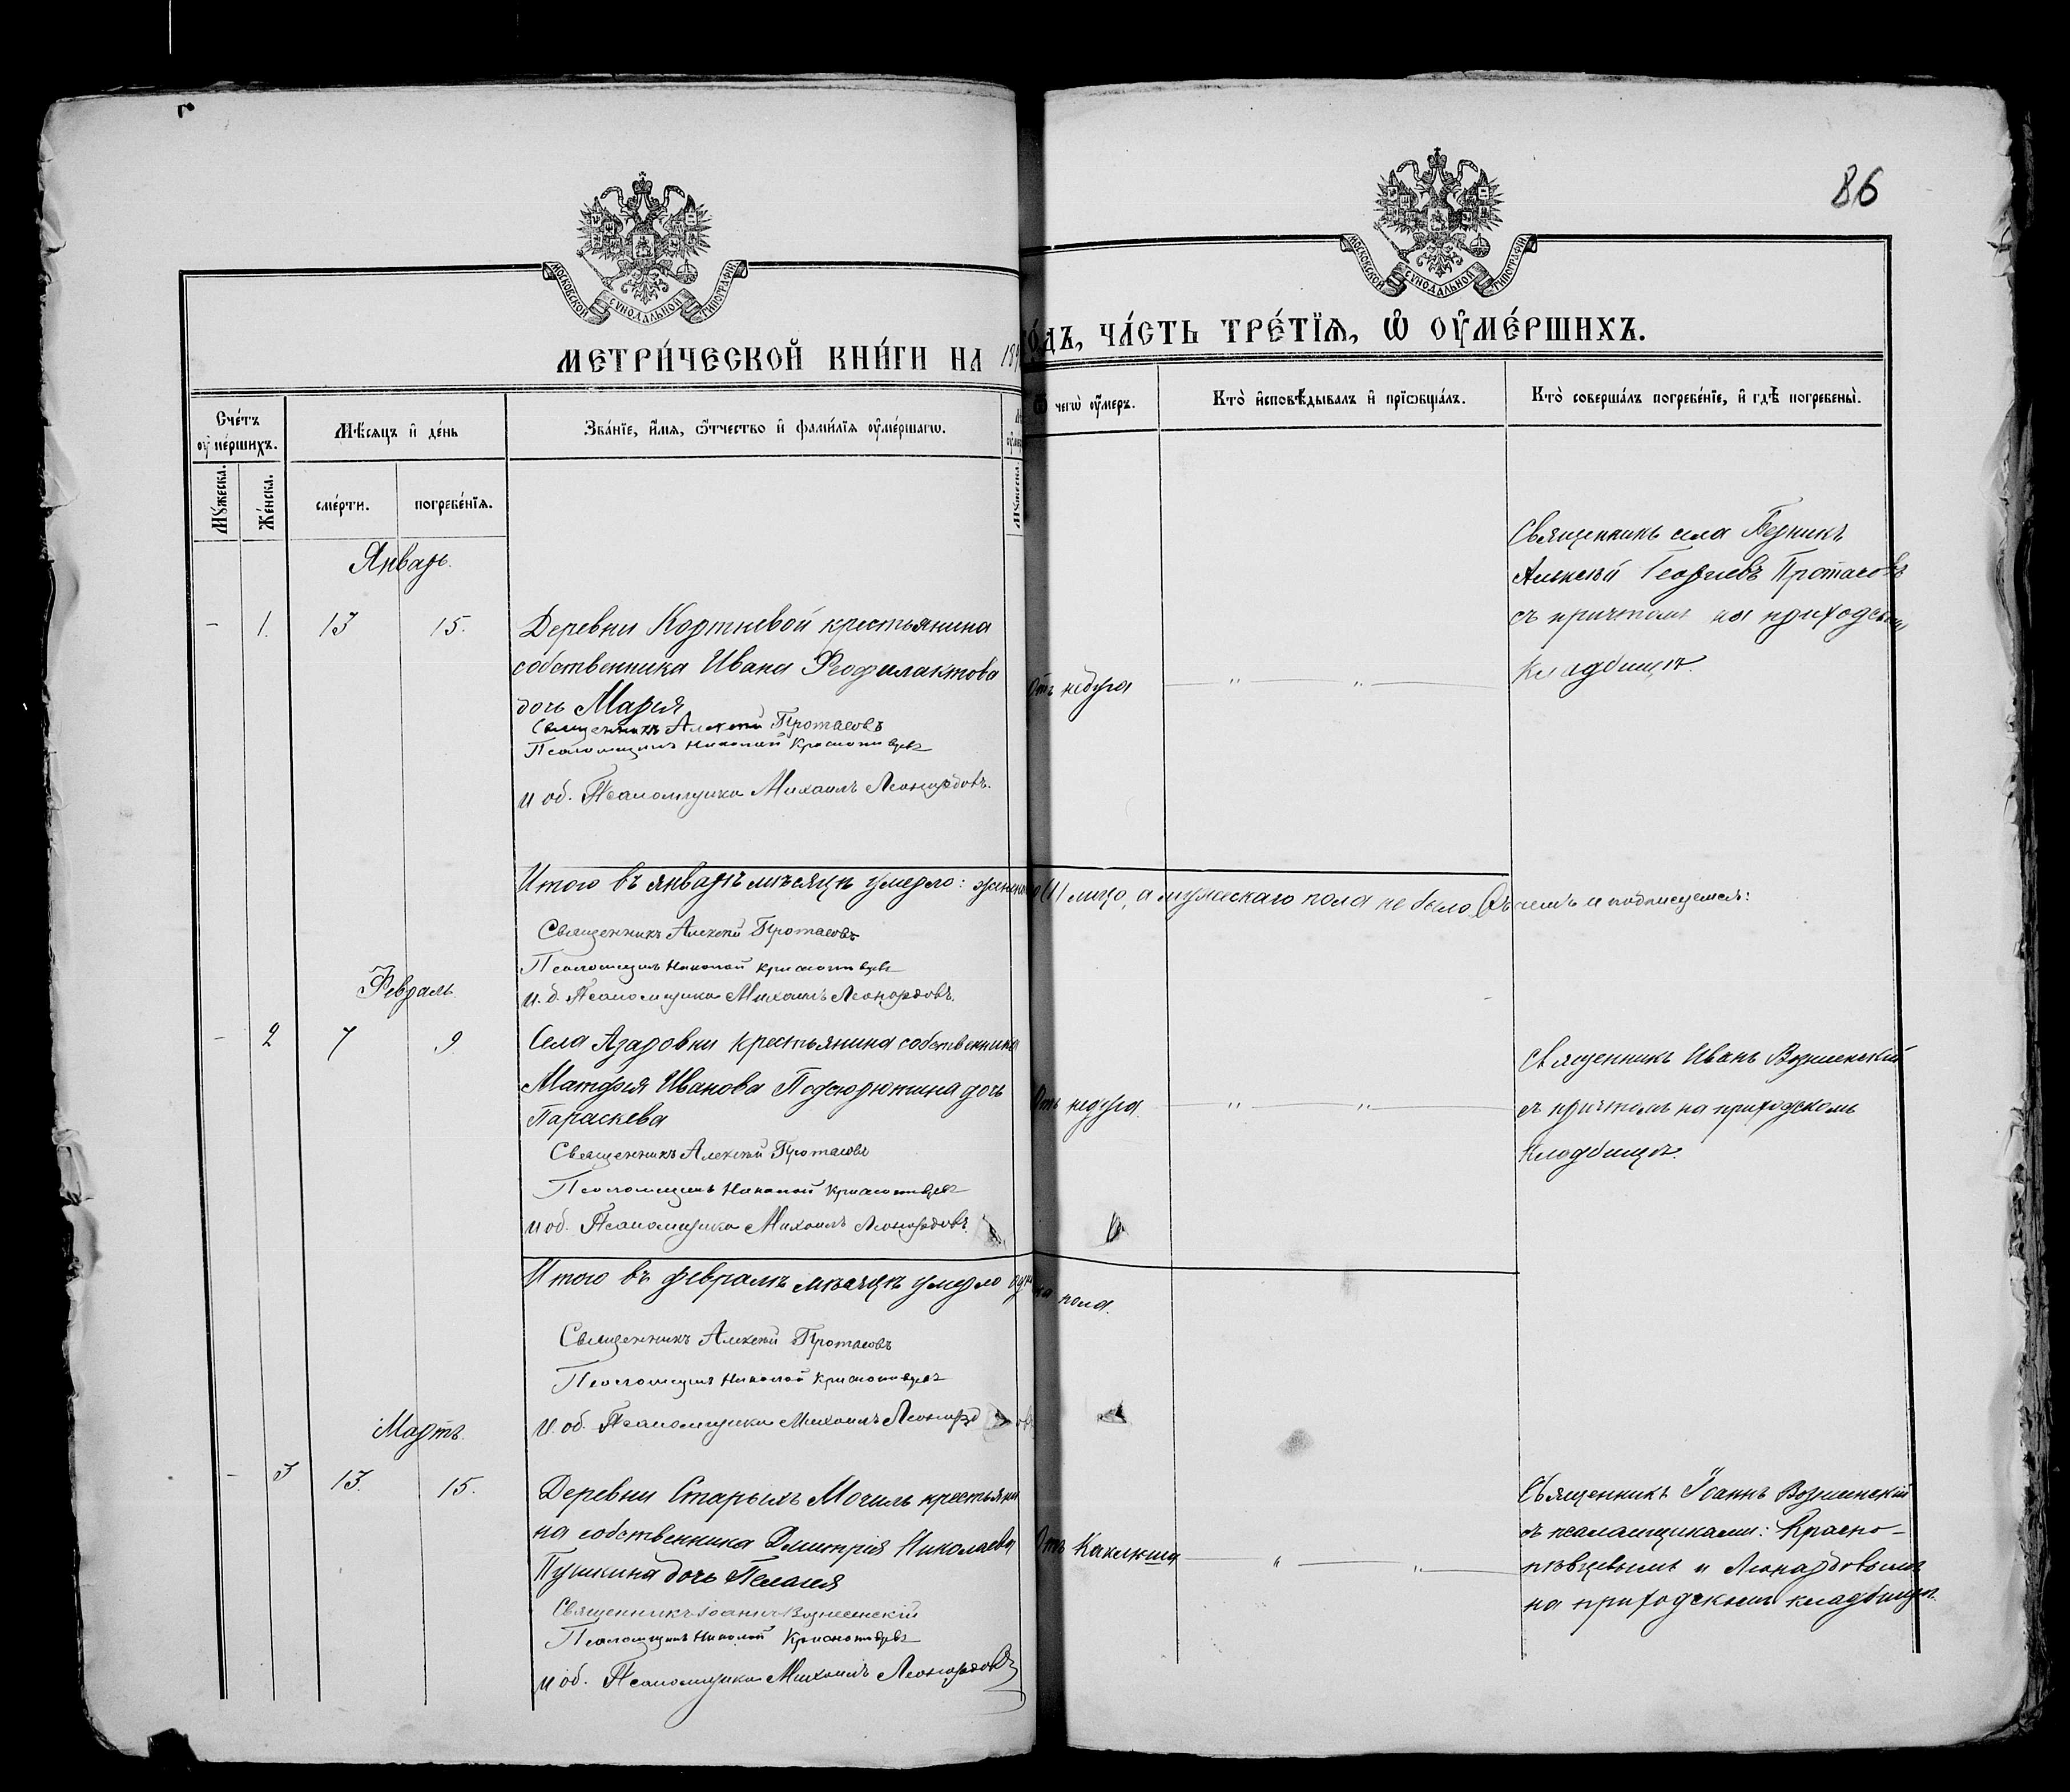 86
МОСКОВСКОЙ СУНОДАЛЬНОЙ ТИПОГРАФІИ
МОСКОВСКОЙ СУНОДАЛЬНОЙ ТИПОГРАФІИ
МЕТРИ́ЧЕСКОЙ КНИ́ГИ НА 18
ГО́ДЪ, ЧА́СТЬ ТРЕ́ТЇѦ, Ѡ҆ ОУ҆МЕ́РШИХЪ.
Сче́тъ оу҆ме́ршихъ.
Мѣ́сяцъ и҆ де́нь
Зва́нїе, и҆́мѧ, ѻ҆́тчество и҆ фами́лїѧ оу҆ме́ршагѡ.
Ѿ чегѡ̀ оу҆́меръ.
Кто̀ и҆сповѣ́дывалъ и҆ прїѡбща́лъ.
Кто̀ соверша́лъ погребе́нїе, и҆ гдѣ̀ погребены̀.
Мꙋ́жеска.
Же́нска.
сме́рти.
погребе́нїѧ.
Мꙋ́жеска.
Январь.
- 1. 13 15.
Деревни Кортневой крестьянина
собственника Ивана Феофилактова
дочь Марія
Священникъ Алексѣй Протасовъ
Псаломщикъ Николай Краснопѣвцевъ
И об. Псаломщика Михаилъ Леонардовъ.
Отъ недуга
Священникъ села
Алексѣй Георгіевъ Протасовъ
съ причтомъ на приходском
кладбищѣ.
Итого въ январѣ мѣсяцѣ умерло: женскаго (1) лицо, а мужескаго пола не было. Въ чемъ и подписуемся:
Священникъ Алексѣй Протасовъ
Псаломщикъ Николай Краснопѣвцевъ
И. д. Псаломщика Михаилъ Леонардовъ.
Февраль.
- 2 7 9
Села Азаровки крестьянина собственника
Матфея Иванова дочь
Параскева
Священникъ Алексѣй Протасовъ
Псаломщикъ Николай Краснопѣвцевъ
И об. Псаломщика Михаилъ Леонардовъ.
Отъ недуга.
Священникъ Иванъ Вознесенскій
съ причтомъ на приходскомъ
кладбищѣ.
Итого въ февралѣ мѣсяцѣ умерло пола.
Священникъ Алексѣй Протасовъ
Псаломщикъ Николай Краснопѣвцевъ
И. об. Псаломщика Михаилъ Леонардовъ
Мартъ.
- 3 13. 15.
Деревни Старыхъ Могилъ крестьяни
на собственника Дмитрія Николаева
Пушкина дочь Пелагея
Священникъ Іоаннъ Вознесенскій
Псаломщикъ Николай Краснопѣвцевъ
И об. Псаломщика Михаилъ Леонардовъ
Отъ Каклюша
Священникъ Іоаннъ Вознесенскій
съ псаломщиками: Красно-
пѣвцевымъ и Леонардовымъ
на приходскомъ кладбищѣ.